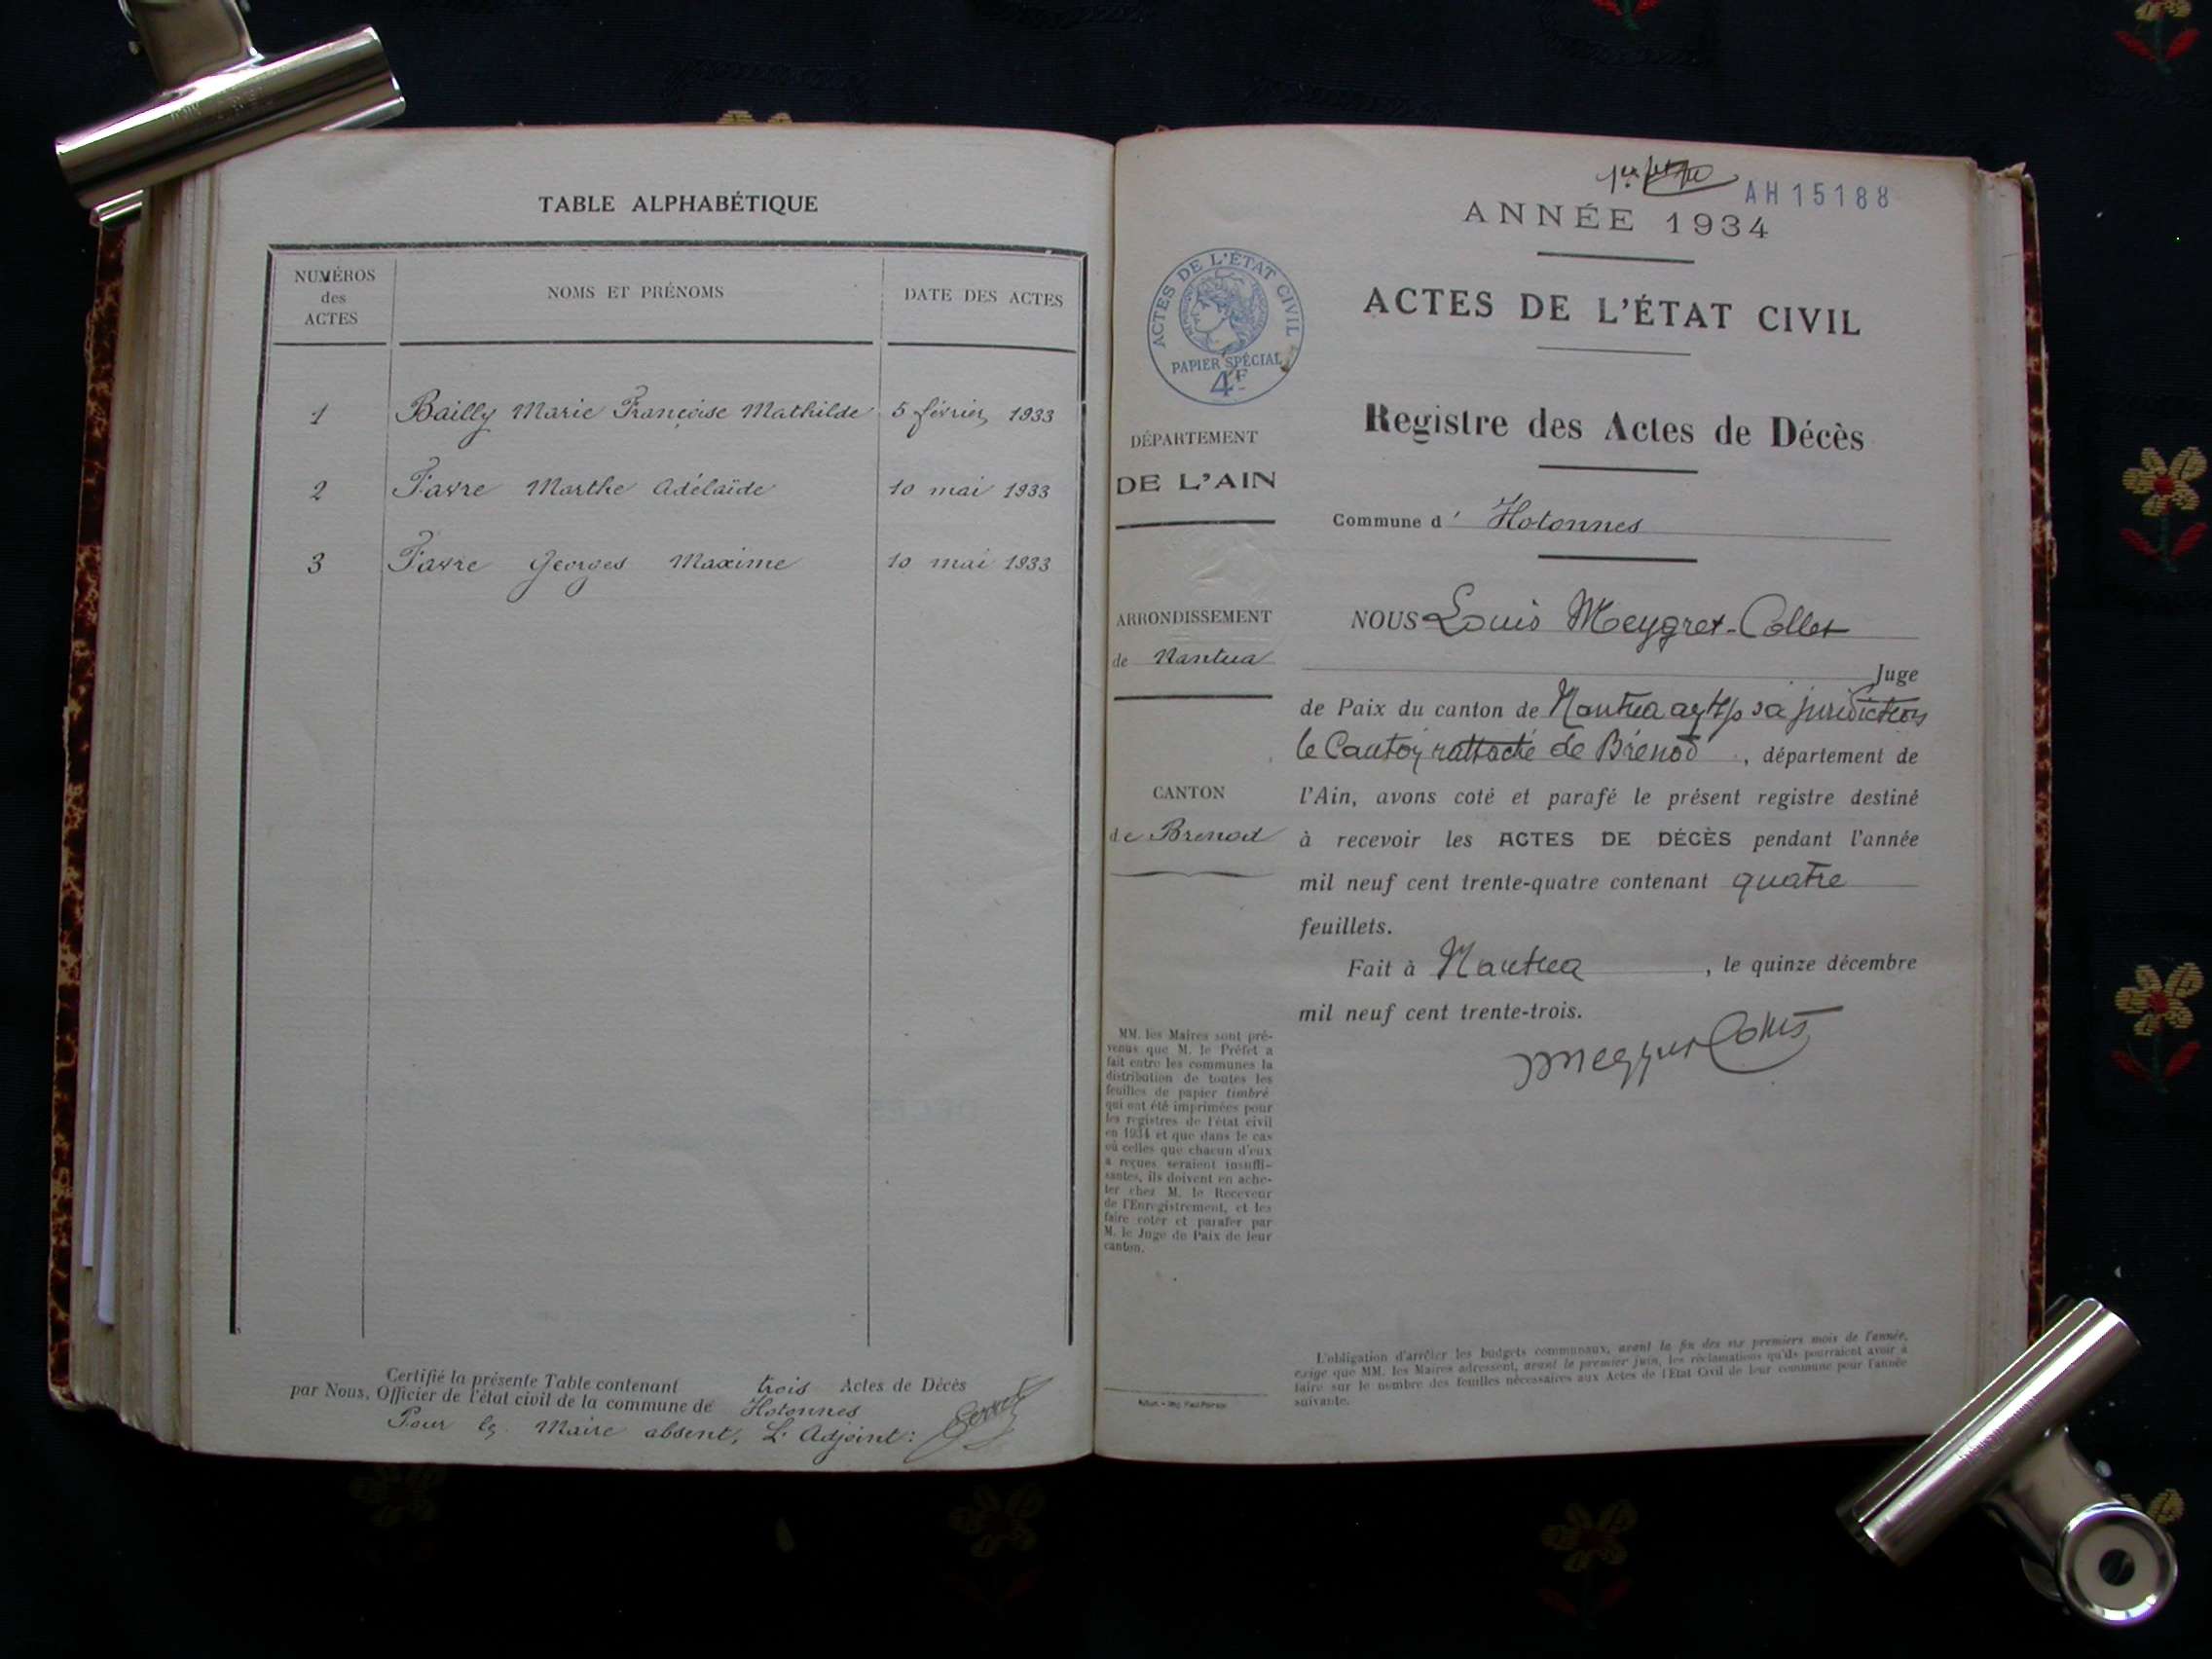 TABLE ALPHABÉTIQUE
NUMÉROS
des
ACTES
NOMS ET PRÉNOMS
DATE DES ACTES
1 Bailly Marie Françoise Mathilde 5 février 1933
2 Favre Marthe Adélaïde 10 mai 1933
3 Favre Georges Maxime 10 mai 1933
Certifié la présente Table contenant trois Actes de Décès
par Nous, Officier de l'état civil de la commune de Hotonnes
Pour le Maire absent, L'Adjoint:
AH15188
ANNÉE 1934
ACTES DE L'ÉTAT CIVIL
PAPIER SPÉCIAL
4F
ACTES DE L'ÉTAT CIVIL
Registre des Actes de Décès
DÉPARTEMENT
DE L'AIN
Commune d' Hotonnes
ARRONDISSEMENT
de Nantua
CANTON
de Brenod
NOUS Louis Meygret-Collet
Juge
de Paix du canton de Nantua ayt sa juridiction
le Canton rattaché de Brénod, département de
l'Ain, avons coté et parafé le présent registre destiné
à recevoir les ACTES DE DÉCÈS pendant l'année
mil neuf cent trente-quatre contenant quatre
feuillets.
Fait à Nantua, le quinze décembre
mil neuf cent trente-trois.
Meygret Collet
MM. les Maires sont pré-
venus que M. le Préfet a
fait entre les communes la
distribution de toutes les
feuilles de papier timbré
qui ont été imprimées pour
les registres de l'état civil
en 1934 et que dans le cas
où celles que chacun d'eux
a reçues seraient insuffi-
santes, ils doivent en ache-
ter chez M. le Receveur
de l'Enregistrement, et les
faire coter et parafer par
M. le Juge de Paix de leur
canton.
L'obligation d'arrêter les budgets communaux, avant la fin des six premiers mois de l'année,
exige que MM. les Maires adressent, avant le premier juin, les réclamations qu'ils pourraient avoir à
faire sur le nombre des feuilles nécessaires aux Actes de l'Etat Civil de leur commune pour l'année
suivante.